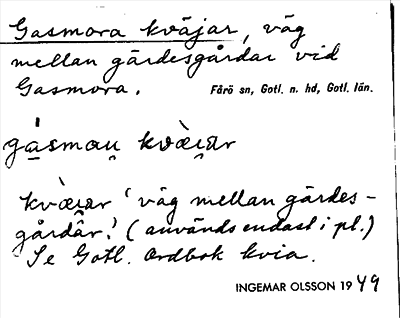 Gasmora kväjar, väg
mellan gärdesgårdar vid
Gasmora.
Fårö sn, Gotl. n. hd, Gotl. län.
kväjar ‘väg mellan gärdes-
gårdar.’ (används endast i pl.)
Se Gotl. Ordbok kvia.
INGEMAR OLSSON 1949